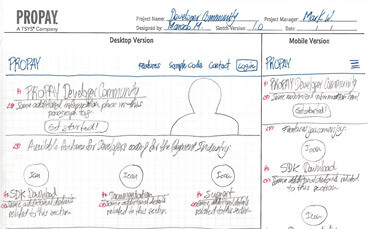 PROPAY
A TSYS® Company
Project Name: Developer Community
Project Manager: Mark W.
Designed by: Marcelo M.
Sketch Version: 1.0
Date:
Desktop Version
Mobile Version
PROPAY
Features Sample Code Contact Login
PROPAY
H1 PROPAY Developer Community
Some additional information place in this
paragraph tag
Get started!
Available features for Developers coding for the Payment Industry:
Icon
Icon
Icon
SDK Download
Some additional details
related to this section
Documentation
Some additional details
related to this section
Support
Some additional details
related to this section
PROPAY Developer Community
Some additional information
Get started!
Features
Icon
SDK Download
Some additional details related
to this section
Icon